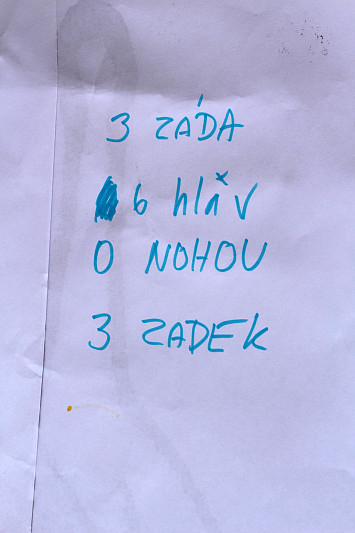 3 ZÁDA
6 hlav
0 NOHOU
3 ZADEK